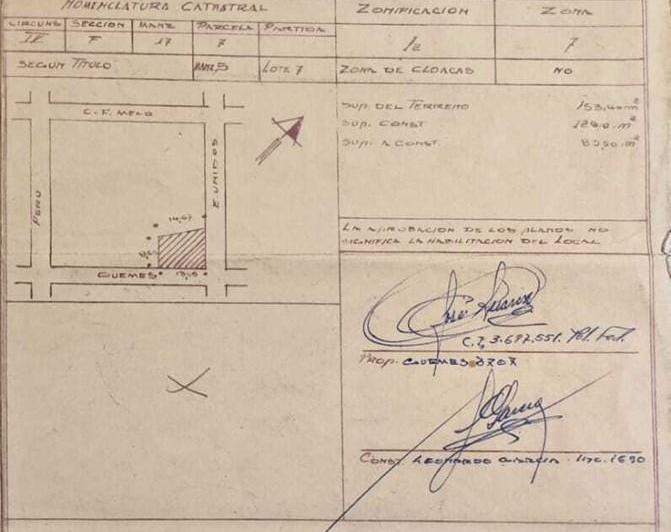 NOMENCLATURA CATASTRAL
ZONIFICACION
ZONA
CIRCUNS SECCION MANZ PARCELA PARTIDA
IV F 17 7
7
SEGUN TITULO MANZ.5 LOTE 7
ZONA DE CLOACAS NO
SUP. DEL TERRENO 153,40 m²
SUP. CONST
SUP. A CONST.
C.F. MELO
E. UNIDOS
PERU
14,67
GUEMES
LA APROBACION DE LOS PLANOS NO
SIGNIFICA LA HABILITACION DEL LOCAL
C.I, 3.697.551. Pol. Fed.
PROP. GUEMES 3707
CONST. LEONARDO GARCIA